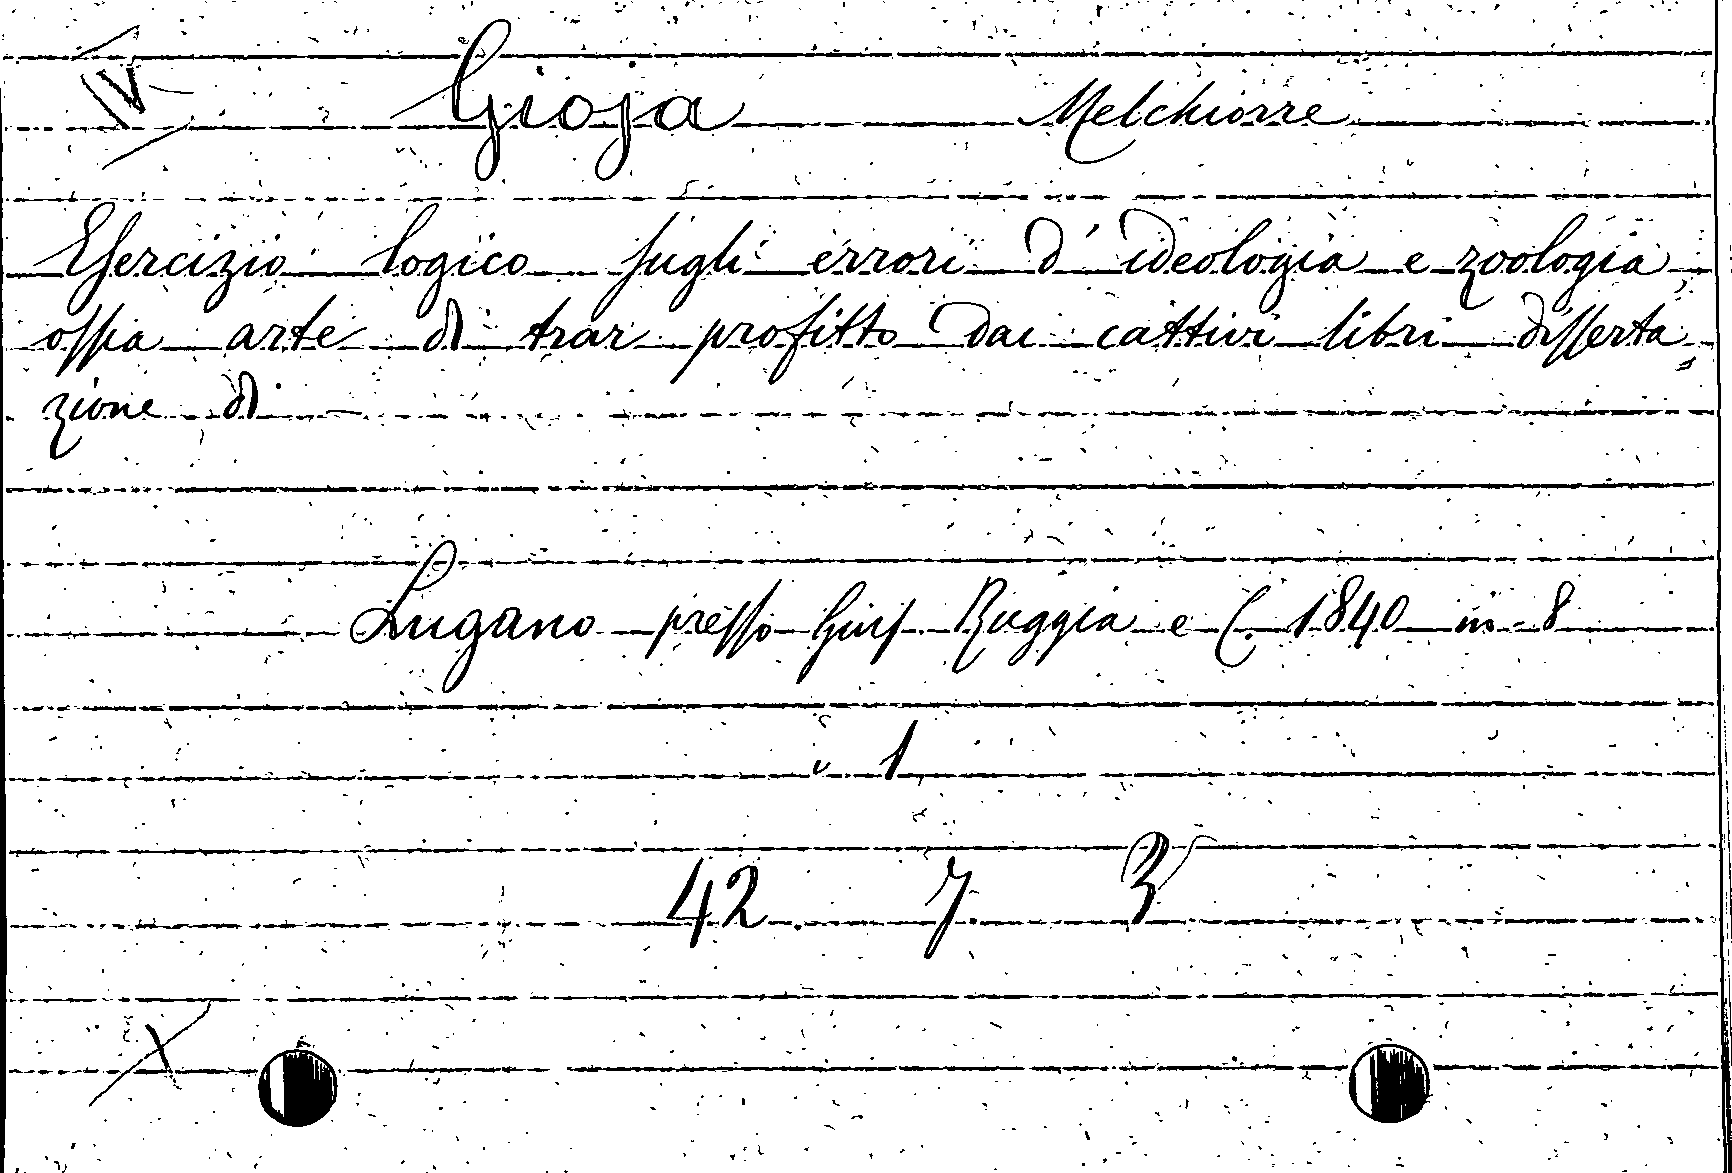 IV Gioja Melchiorre
Esercizio logico sugli errori d'ideologia e zoologia
ossia arte di trar profitto dai cattivi libri disserta=
zione di
Lugano presso Gius Ruggia e C. 1840 in 8
1
42 7 3
X